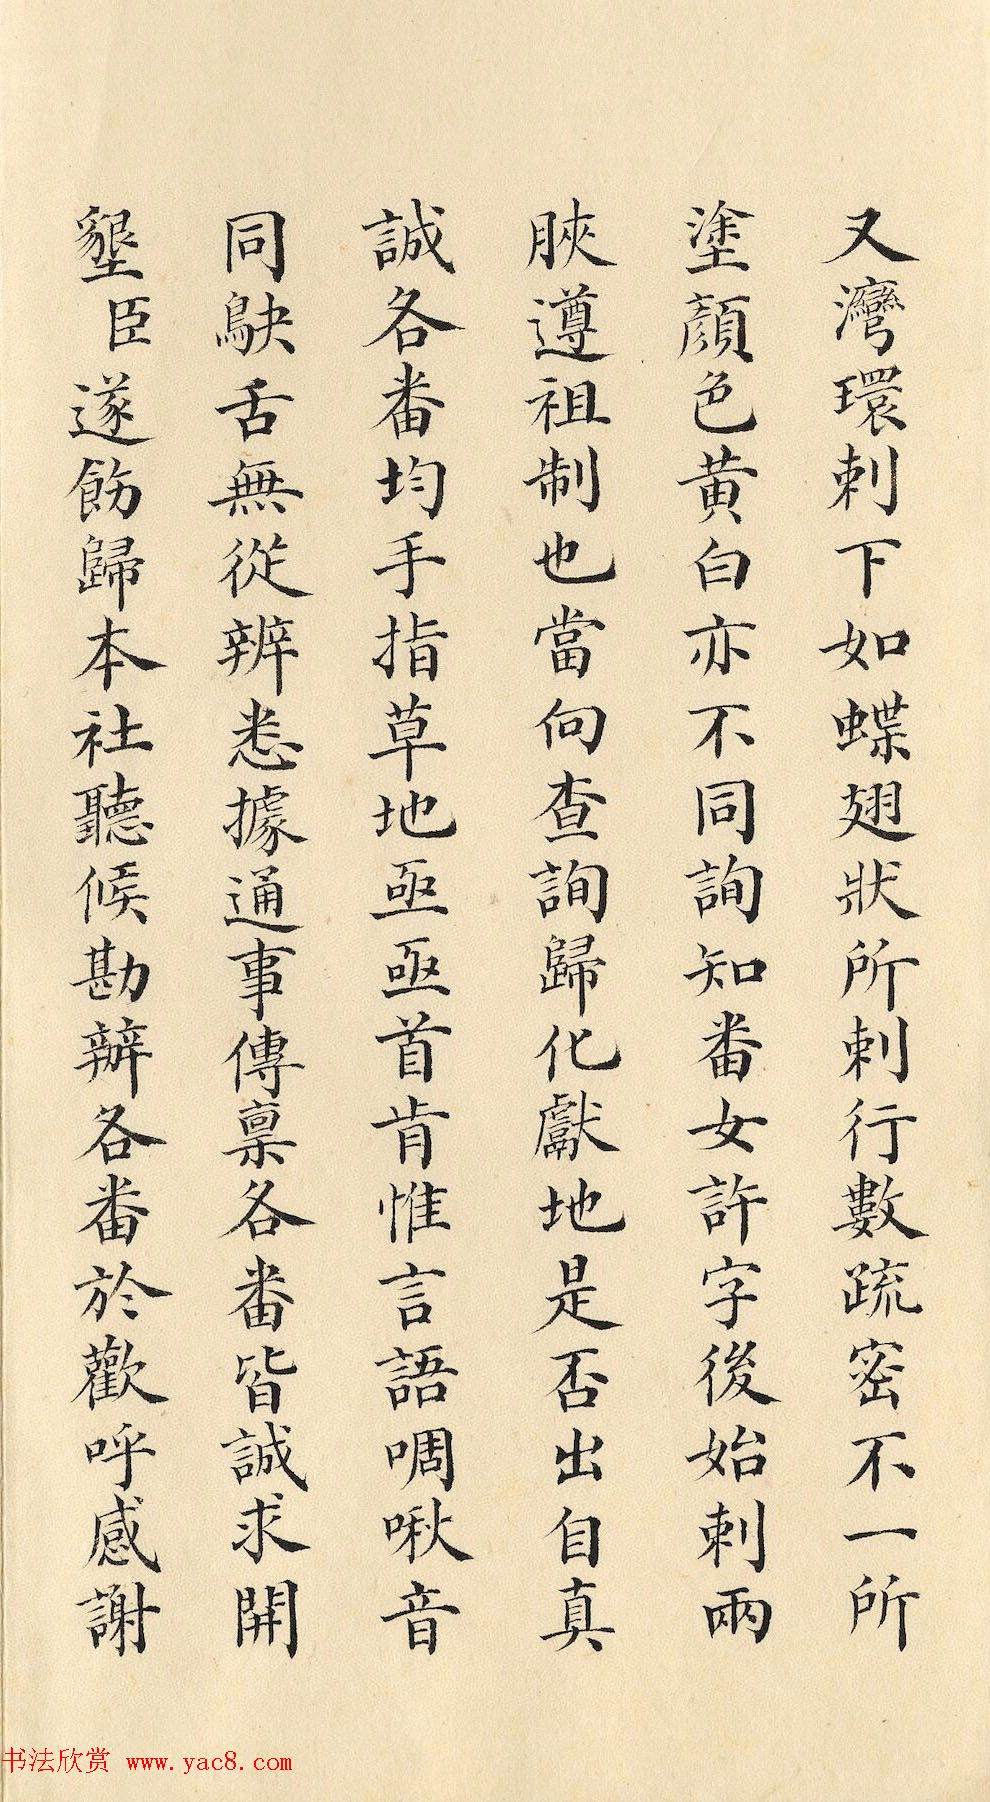 又灣環刺下如蝶翅狀所刺行數疏密不一所
塗顏色黄白亦不同詢知番女許字後始刺兩
脥遵祖制也當向查詢歸化獻地是否出自真
誠各番均手指草地亟亟首肯惟言語啁啾音
同鴃舌無從辨悉據通事傳稟各番皆誠求開
墾臣遂飭歸本社聽候勘辦各番於歡呼感謝
书法欣赏 www.yac8.com